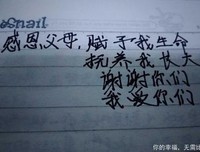 snail
感恩父母,赋予我生命
抚养我长大
谢谢你们
我爱你们
你的幸福,无需炫